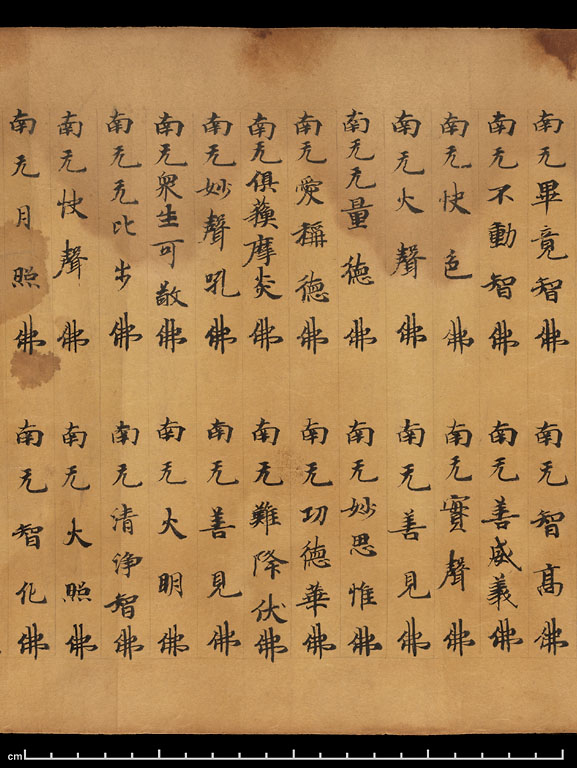 南无畢竟智佛 南无智高佛
南无不動智佛 南无善威義佛
南无快色佛 南无實聲佛
南无大聲佛 南无善見佛
南无无量德佛 南无妙思惟佛
南无愛稱德佛 南无功德華佛
南无俱蘓摩炎佛 南无難降伏佛
南无妙聲吼佛 南无善見佛
南无衆生可敬佛 南无大明佛
南无无比步佛 南无清浄智佛
南无快聲佛 南无大照佛
南无月照佛 南无智化佛
cm